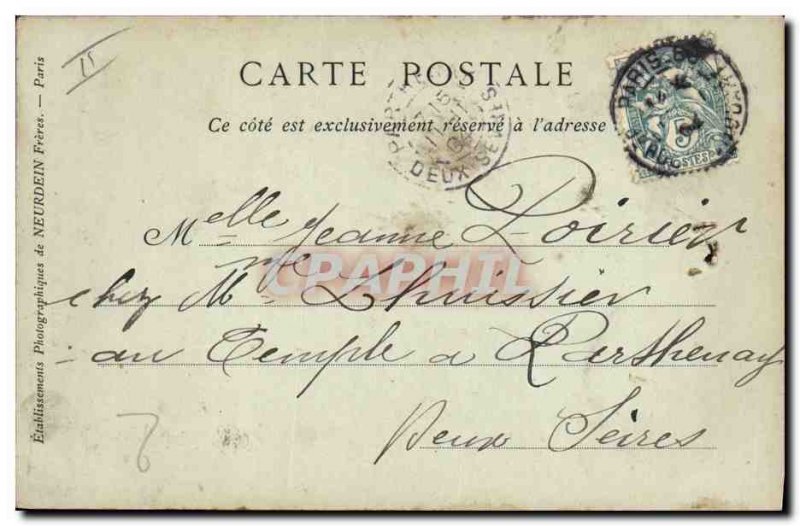 15
CARTE POSTALE
Ce côté est exclusivement réservé à l'adresse
DEUX-SÈVRES
5
POSTES
Melle Jeanne Poirier
chez Me Lhuissier
au Temple a Parthenay
Deux Sèvres
CPAPHIL
Établissements Photographiques de NEURDEIN Frères. — Paris